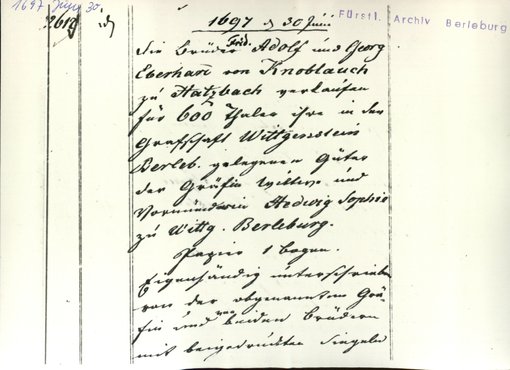 1697 Juni 30.
Fürstl. Archiv Berleburg
2619
1697 d 30 Juni
Die Brüder Frid. Adolf und Georg
Eberhard von Knoblauch
zu Hatzbach verkaufen
für 600 Thaler ihre in der
Grafschaft Wittgenstein
Berleb. gelegenen Güter
der Gräfin Wittwe und
Vormünderin Hedwig Sophie
zu Wittg. Berleburg.
Papier 1 Bogen.
Eigenhändig unterschrieben
von der obgenannten Grä-
fin und von beiden Brüdern
mit beigedrückten Siegeln